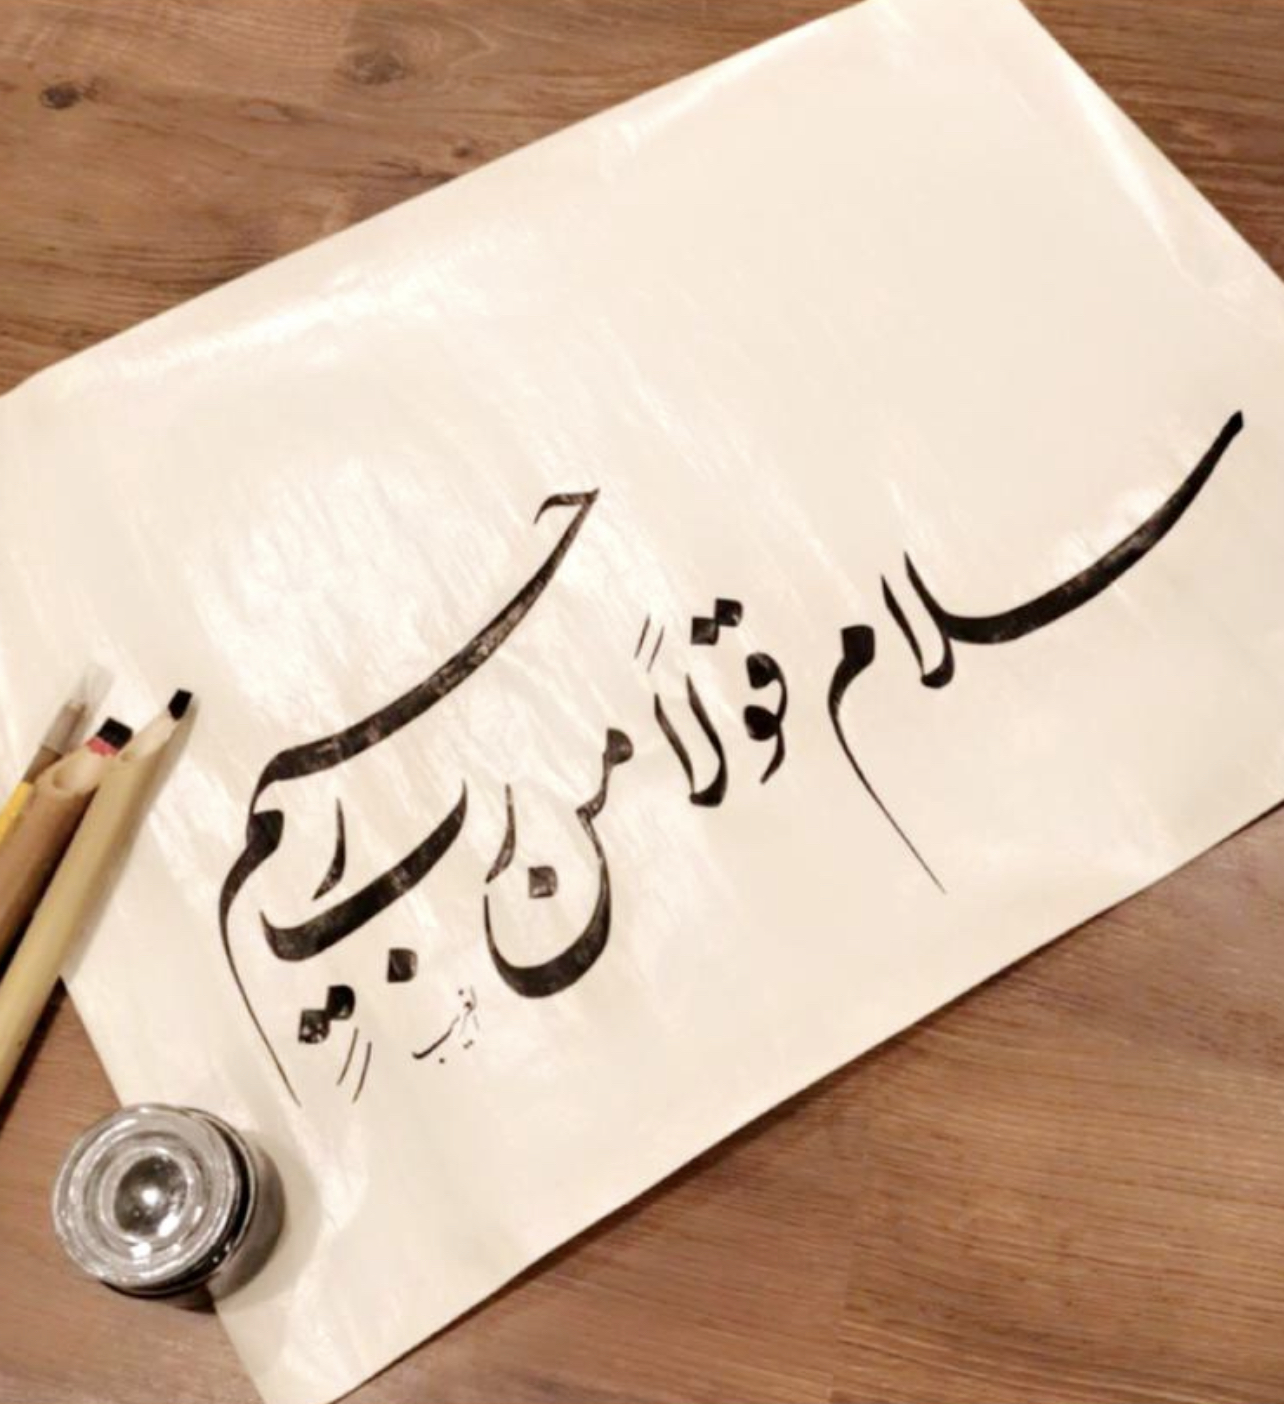 سلام قولاً من رب رحيمٍ
الغريب